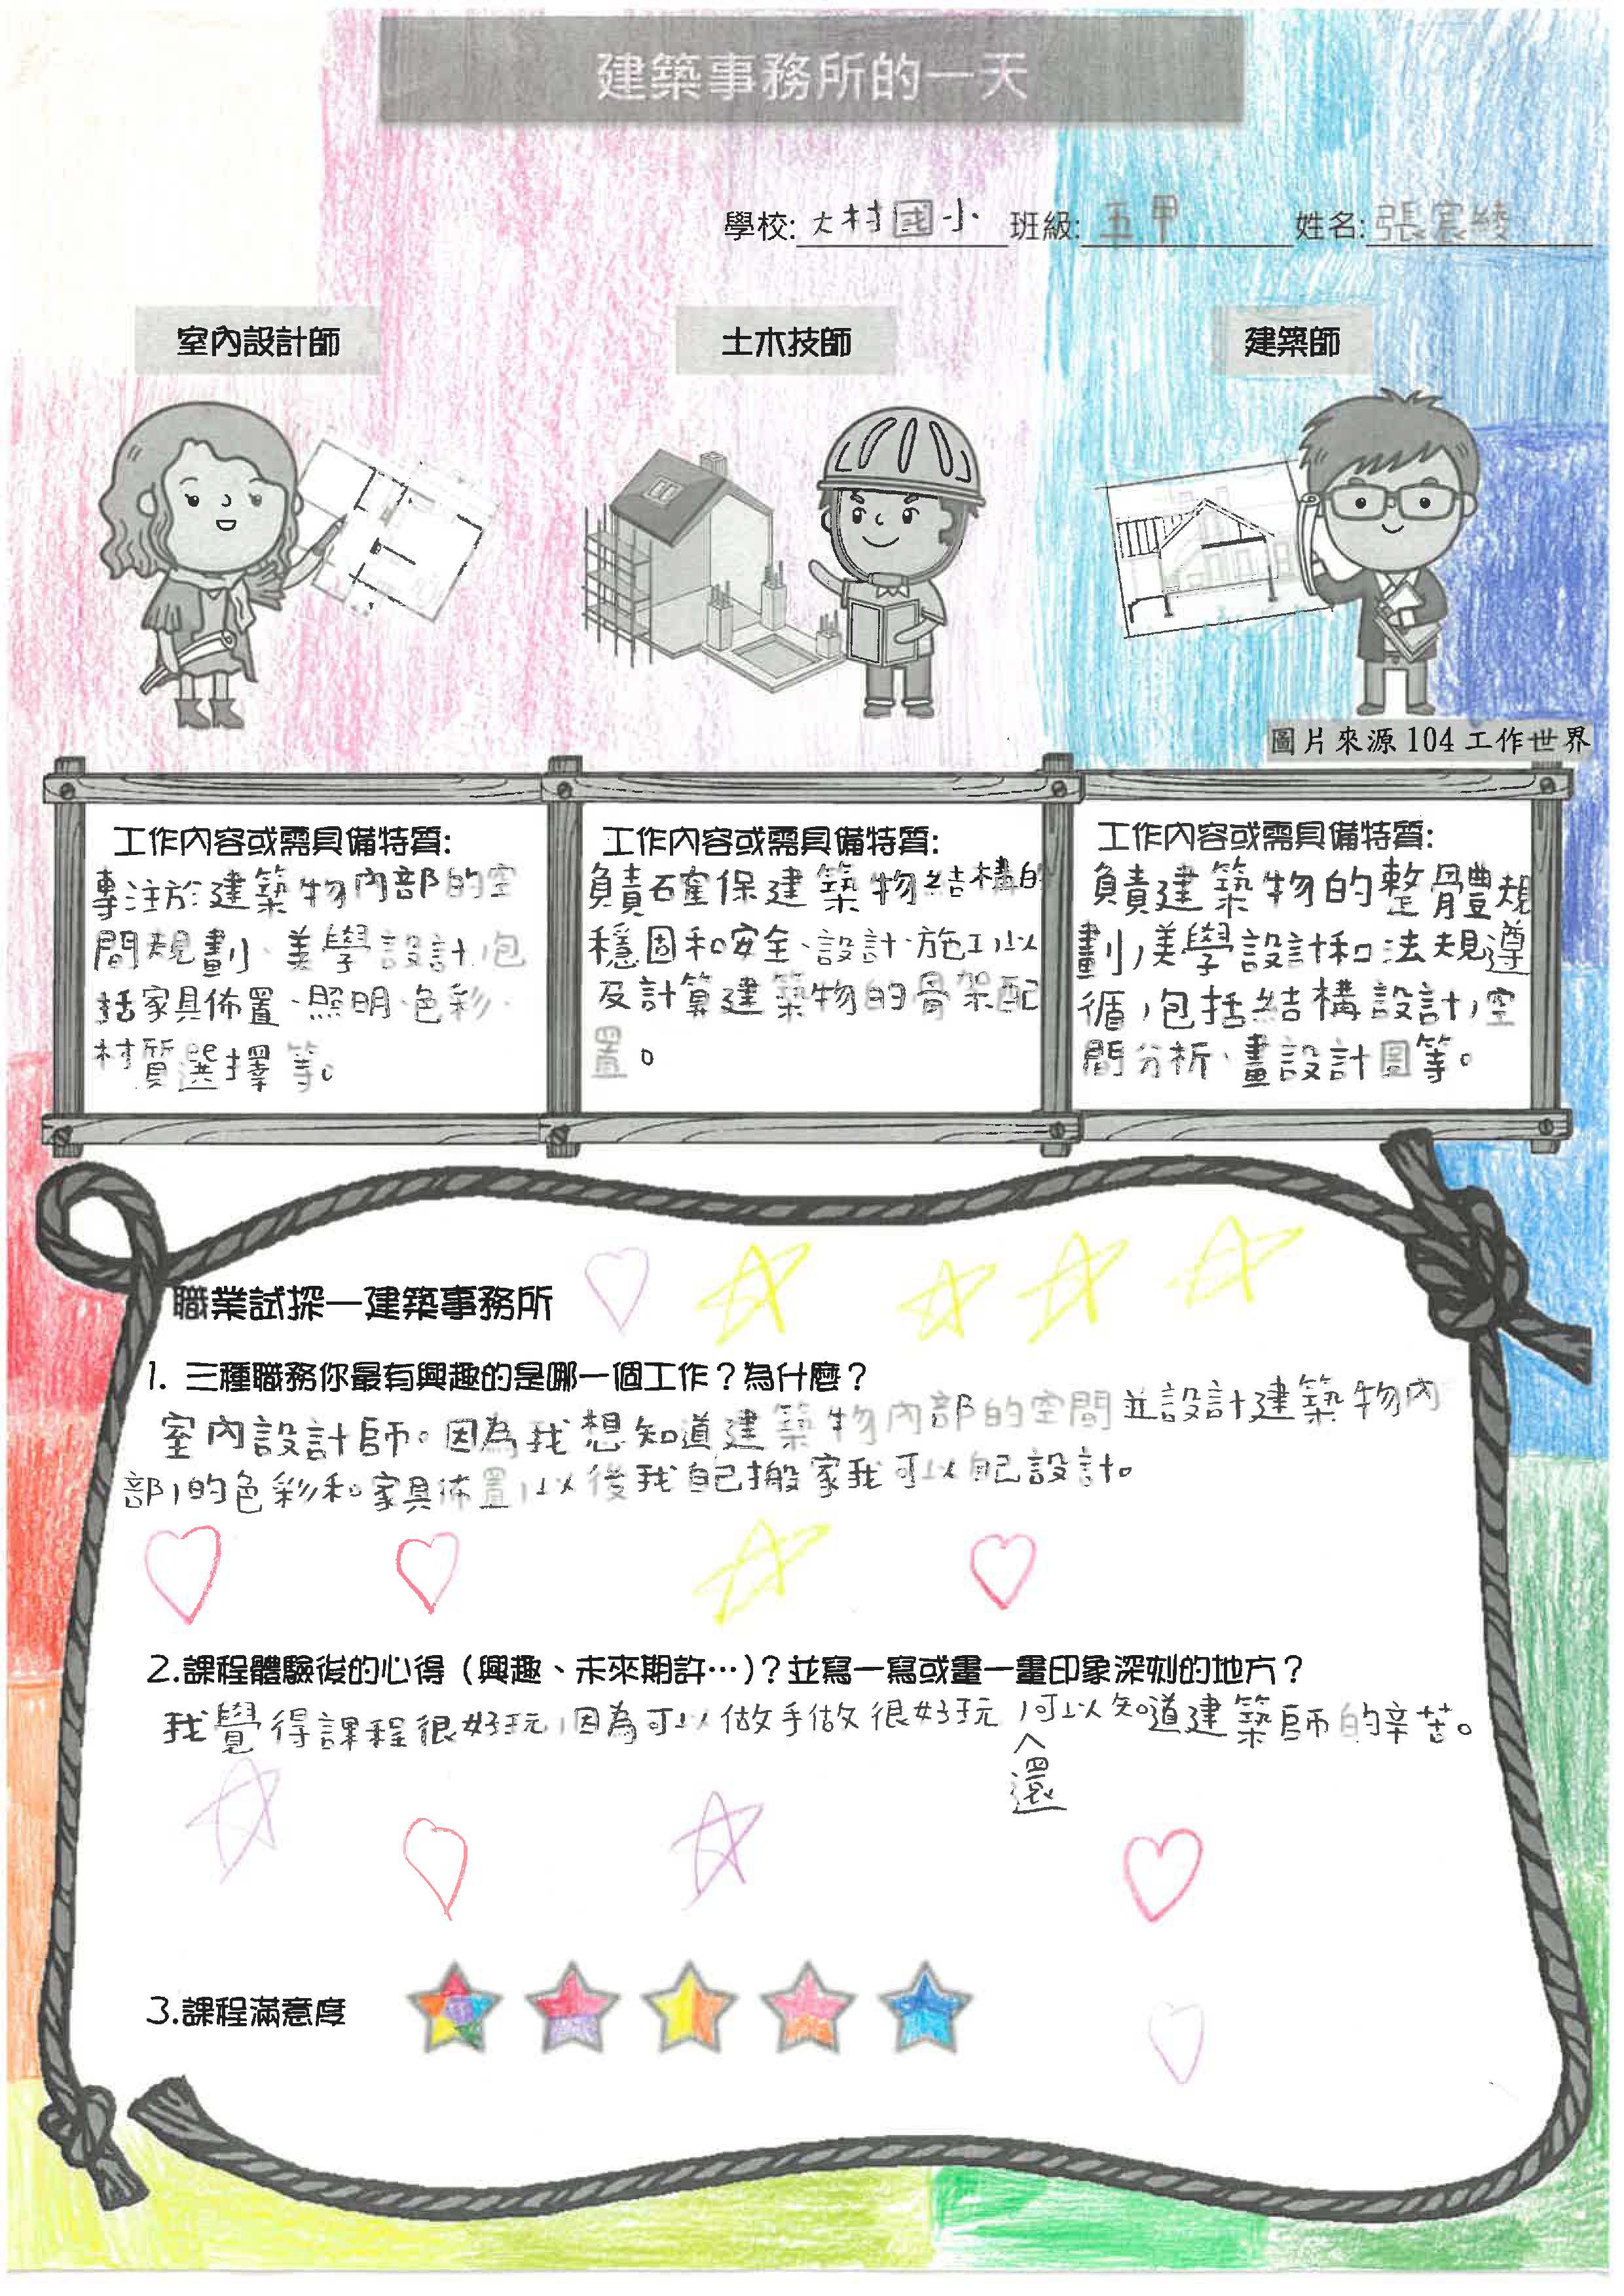 建築事務所的一天
學校: 大村國小 班級: 五甲 姓名: 張宸綾
室內設計師
土木技師
建築師
圖片來源 104 工作世界
工作內容或需具備特質:
專注於建築物內部的空
間規劃、美學設計,包
括家具佈置、照明、色彩、
材質選擇等。
工作內容或需具備特質:
負責確保建築物結構的
穩固和安全、設計、施工,以
及計算建築物的骨架配
置。
工作內容或需具備特質:
負責建築物的整體規
劃,美學設計和法規遵
循,包括結構設計,空
間分析、畫設計圖等。
職業試探—建築事務所
1. 三種職務你最有興趣的是哪一個工作?為什麼?
室內設計師。因為我想知道建築物內部的空間並設計建築物內
部,的色彩和家具佈置,以後我自己搬家我可以自己設計。
2.課程體驗後的心得(興趣、未來期許…)?並寫一寫或畫一畫印象深刻的地方?
我覺得課程很好玩,因為可以做手做很好玩,可以知道建築師的辛苦。
還
3.課程滿意度